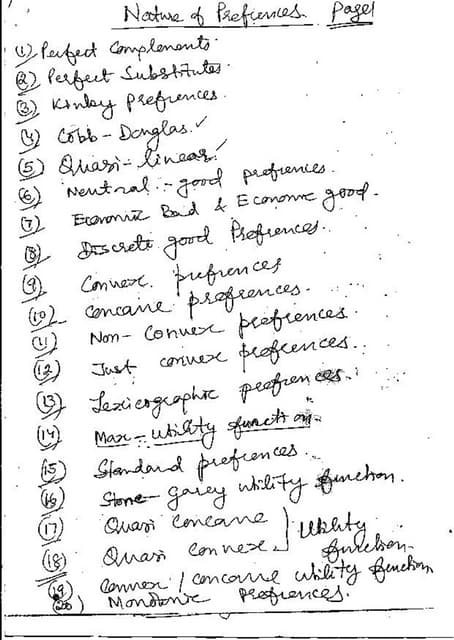 Nature of Prefrences. Page1
(1) Perfect Complements.
(2) Perfect Substitutes.
(3) Kinky Prefrences.
(4) Cobb-Douglas. ✓
(5) Quasi-linear. ✓
(6) Neutral - good prefrences.
(7) Economic Bad & Economic good.
(8) Discrete good Prefrences.
(9) Convex prefrences
(10) Concave prefrences.
(11) Non-Convex prefrences.
(12) Just convex prefrences..
(13) Lexicographic prefrences.
(14) Max-utility function.
(15) Standard prefrences.
(16) Stone-garey utility function.
(17) Quasi concave
(18) Quasi convex. } Utility function.
(19) convex / concave utility function
(20) Monotonic Prefrences.